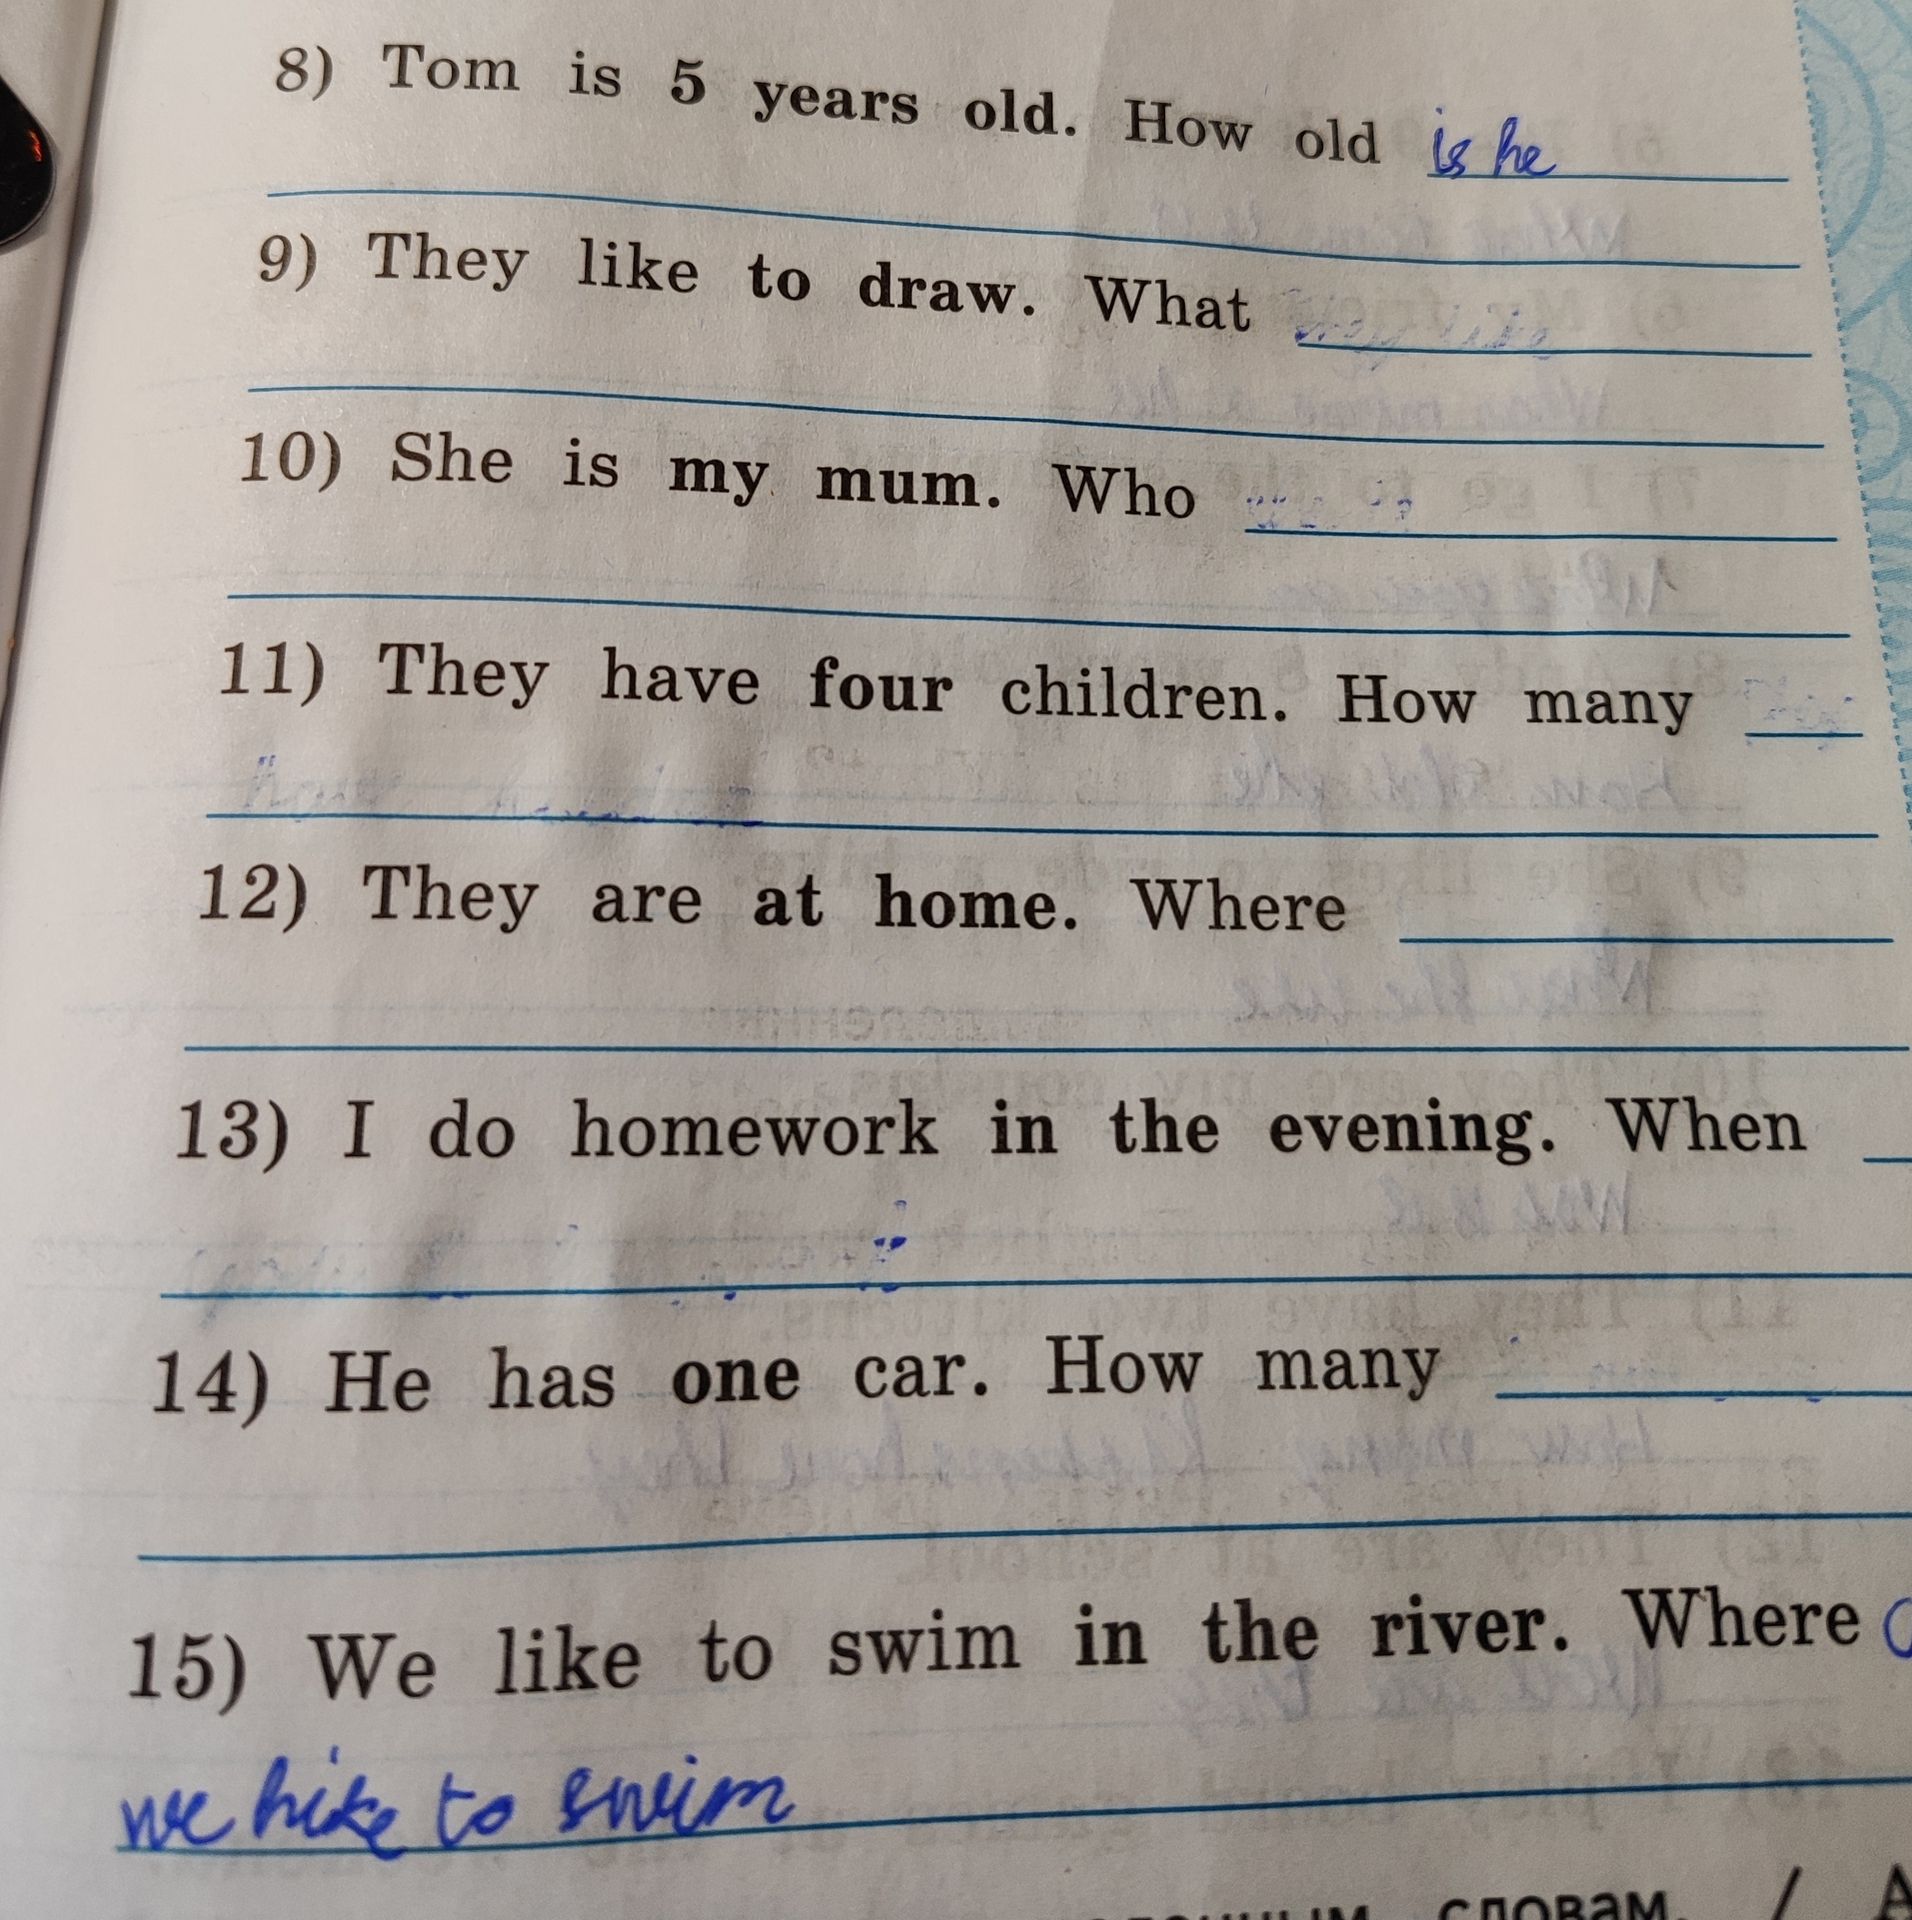 8) Tom is 5 years old. How old is he
9) They like to draw. What
10) She is my mum. Who
11) They have four children. How many
12) They are at home. Where
13) I do homework in the evening. When
14) He has one car. How many
15) We like to swim in the river. Where
we like to swim
словам. /